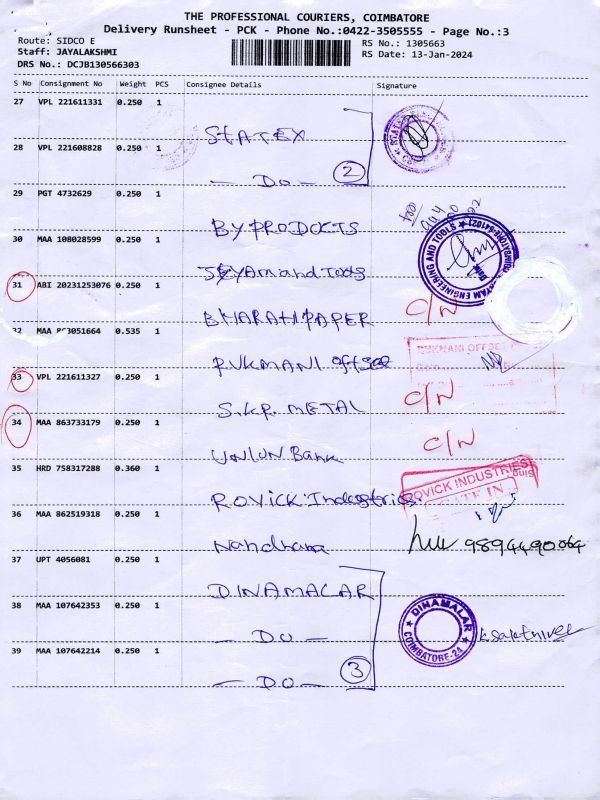 THE PROFESSIONAL COURIERS, COIMBATORE
Delivery Runsheet - PCK - Phone No.:0422-3505555 - Page No.:3
Route: SIDCO E
RS No.: 1305663
Staff: JAYALAKSHMI
RS Date: 13-Jan-2024
DRS No.: DCJB130566303
S No Consignment No Weight PCS Consignee Details Signature
27 VPL 221611331 0.250 1 STATEX
28 VPL 221608828 0.250 1 — DO — 2
29 PGT 4732629 0.250 1 BY PRODUCTS
30 MAA 108028599 0.250 1 and Tools
ENGINEERING AND TOOLS
31 ABI 20231253076 0.250 1 BHARATHI PAPER C/N
MAA 051664 0.535 1 RUKMANI offset
RUKMANI OFFSET
33 VPL 221611327 0.250 1 S.K.P. METAL C/N
34 MAA 863733179 0.250 1 UNION Bank C/N
35 HRD 758317288 0.360 1 ROVICK Industries
ROVICK INDUSTRIES
36 MAA 862519318 0.250 1 Nandhana
37 UPT 4056081 0.250 1 DINAMALAR
38 MAA 107642353 0.250 1 — DO —
DINAMALAR
COIMBATORE-24
39 MAA 107642214 0.250 1 — DO — 3